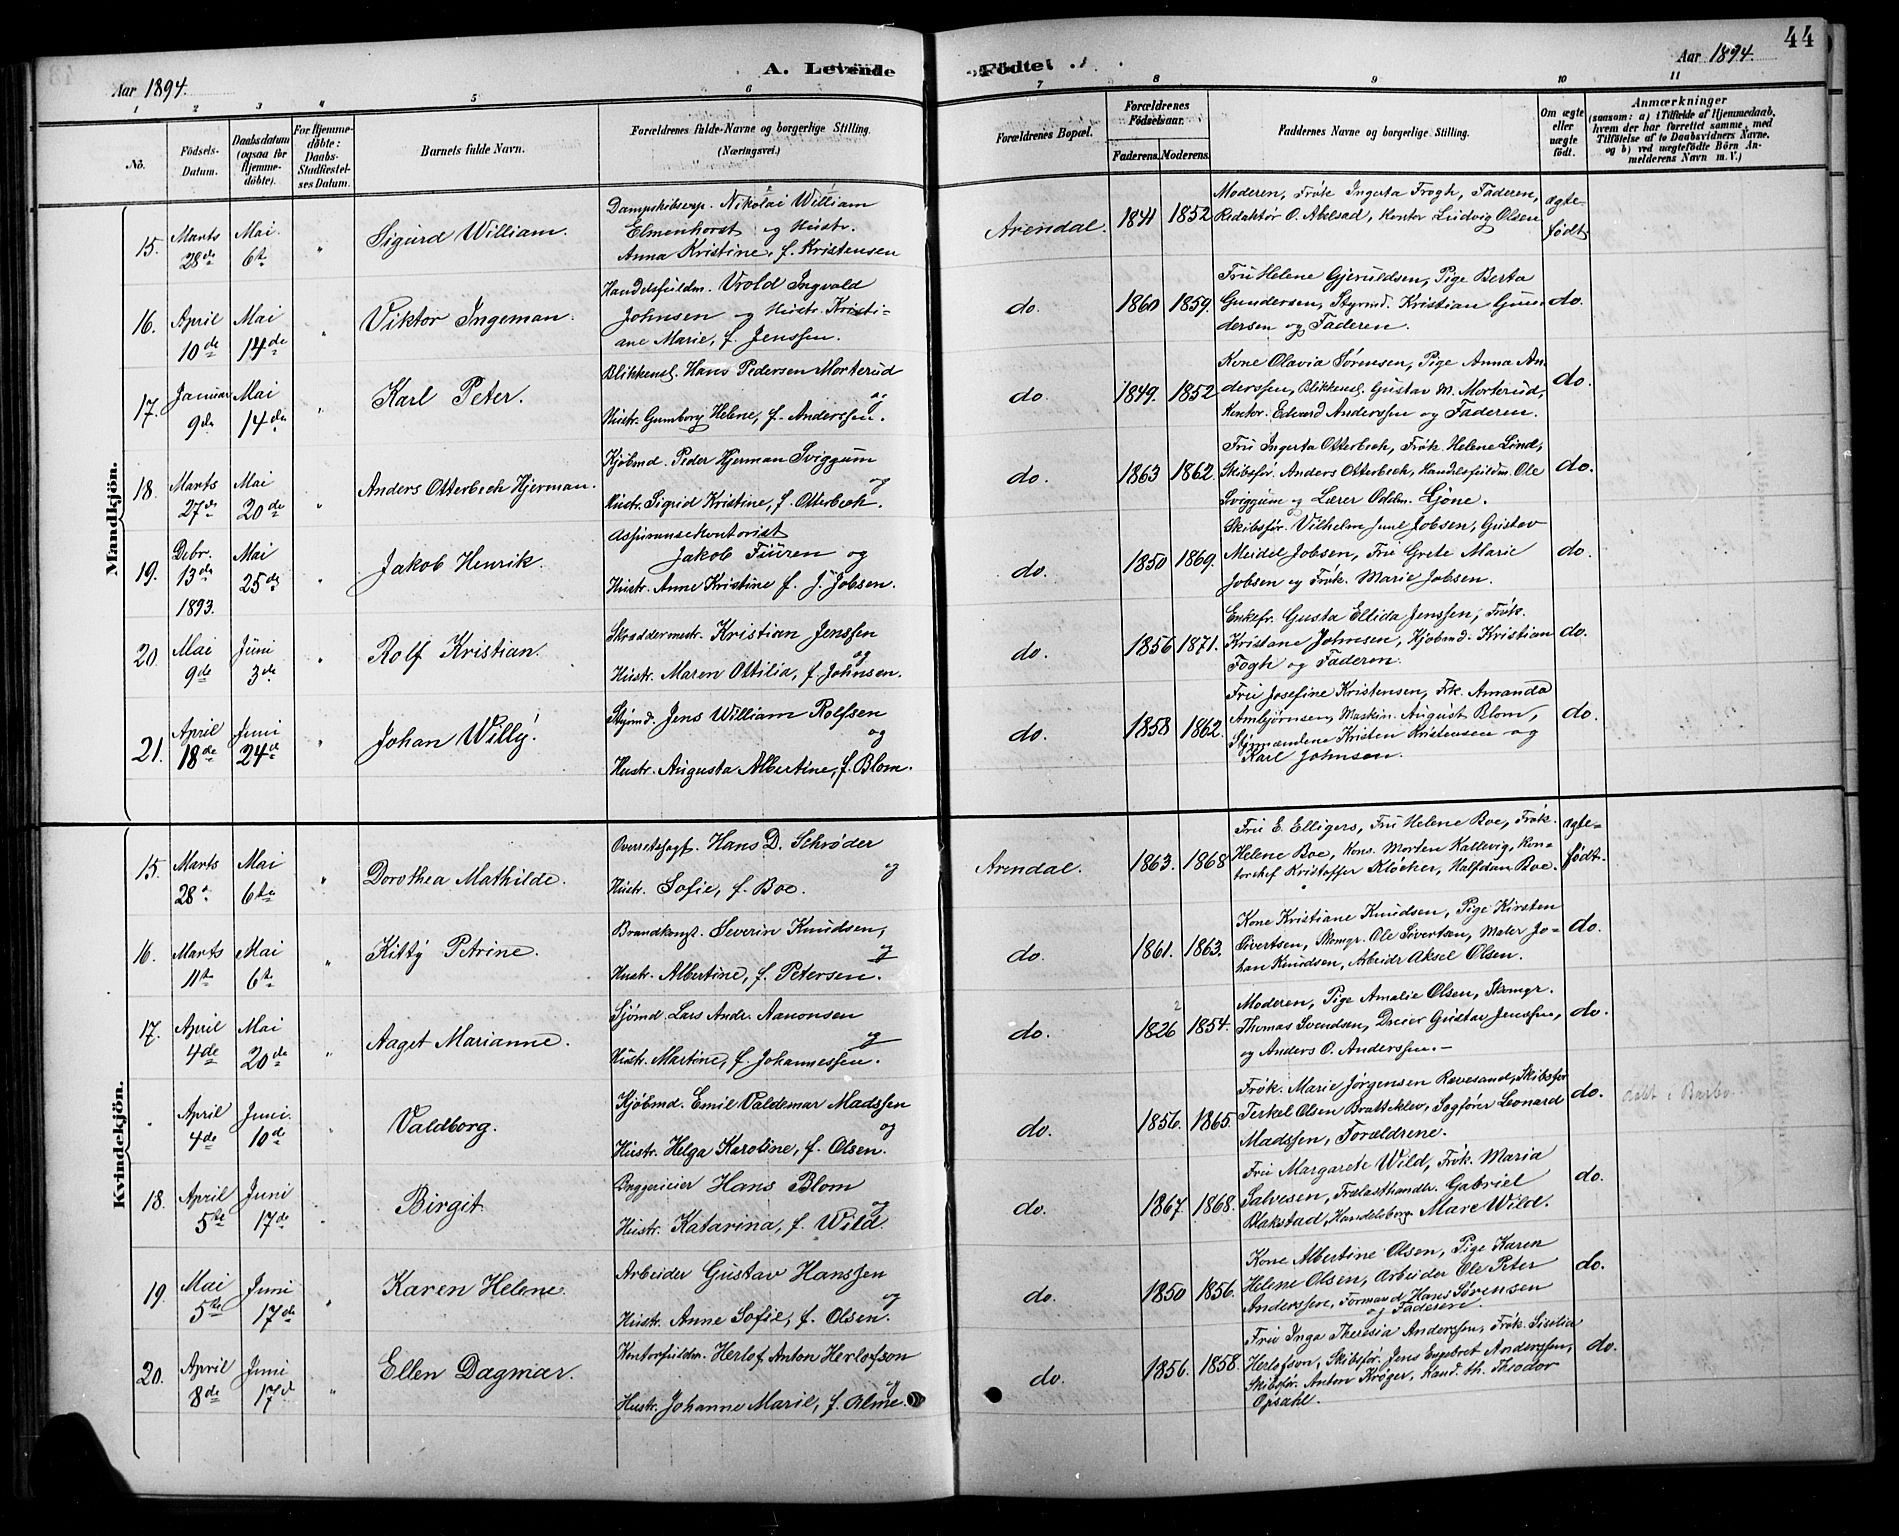 44
Aar 1894.
A. Levende Födte.
Aar 1894.
1 2 3 4 5 6 7 8 9 10 11
No.
Födsels-Datum.
Daabsdatum (ogsaa for Hjemmedöbte).
For Hjemmedöbte: Daabs-Stadfæstelses Datum.
Barnets fulde Navn.
Forældrenes fulde Navne og borgerlige Stilling. (Næringsvei.)
Forældrenes Bopæl.
Forældrenes Födselsaar.
Faderens. Moderens.
Faddernes Navne og borgerlige Stilling.
Om ægte eller uægte födt.
Anmærkninger
(saasom: a) i Tilfælde af Hjemmedaab, hvem der har forrettet samme, med Tilföielse af to Daabsvidners Navne, og b) ved uægtefödte Börn Anmelderens Navn m. V.)
Mandkjön.
15. Marts 28de Mai 6te " Sigurd William.
Dampskibsexp. Nikolai William
Elmenhorst og Hustr.
Anna Kristine, f. Kristensen
Arendal. 1841 1852
Moderen, Frøk Ingerta Frogh, Faderen,
Redaktør O. Abelsad, Kontor Ludvig Olsen
ægte-
født
16. April 10de Mai 14de " Viktor Ingeman.
Handelsfuldm. Vrold Ingvald
Johnsen og Hustr. Kristi-
ane Marie, f. Jenssen.
do. 1860 1859.
Fru Helene Gjeruldsen, Pige Berta
Gundersen, Styrmd. Kristian Gun-
dersen og Faderen.
do.
17. Januar 9de Mai 14de " Karl Peter.
Blikkensl. Hans Pedersen Morterud
og
Hustr. Gunborg Helene, f. Anderssen.
do. 1849. 1852
Kone Olavia Sørensen, Pige Anna An-
derssen, Blikkensl. Gustav M. Morterud,
Kontor. Edvard Anderssen og Faderen.
do.
18. Marts 27de Mai 20de " Anders Otterbech Hjerman.
Kjøbmd. Peder Hjerman Sviggum
og
Hustr. Sigrid Kristine, f. Otterbech.
do. 1863 1862.
Fru Ingerta Otterbech, Frøk. Helene Lind,
Skibsfør. Anders Otterbech, Handelsfuldm. Ole
Sviggum og Lærer Oddm. Ljøne.
do.
19. Debr. 13de 1893. Mai 25de " Jakob Henrik.
Assuransekontorist
Jakob Furen og
Hustr. Anne Kristine f. J. Jobsen.
do. 1850 1869.
Skibsfør. Vilhelm Juul Jobsen, Gustav
Meidel Jobsen, Fru Grete Marie
Jobsen og Frøk. Marie Jobsen.
do.
20. Mai 9de Juni 3de " Rolf Kristian.
Skræddermestr. Kristian Jenssen
og
Hustr. Maren Ottilia, f. Johnsen.
do. 1856 1871.
Enkefr. Gusta Ellida Jenssen, Frøk.
Kristane Johnsen, Kjøbmd. Kristian
Fogh og Faderen.
do.
21. April 18de Juni 24de " Johan Willy.
Styrmd. Jens William Rolfsen
og
Hustr. Augusta Albertine, f. Blom.
do. 1858 1862.
Fru Josefine Kristensen, Frk. Amanda
Arnbjørnsen, Maskin. August Blom,
Styrmændene Kristen Kristensen og
Karl Johnsen.
do.
Kvindekjön.
15. Marts 28de Mai 6te " Dorothea Mathilde.
Overretssagf. Hans D. Schrøder
og
Hustr. Sofie, f. Boe.
Arendal. 1863. 1868
Fru E. Elligers, Fru Helene Boe, Frøk.
Helene Boe, Kons. Morten Kallevig, Kon-
torchef Kristoffer Kløcker, Halfdan Boe.
ægte-
født.
16. Marts 11te Mai 6te " Kitty Petrine.
Brandkonst. Severin Knudsen,
og
Hustr. Albertine, f. Petersen.
do. 1861. 1863.
Kone Kristiane Knudsen, Pige Kirsten
Sivertsen, Skomgr. Ole Sivertsen, Maler Jo-
han Knudsen, Arbeidr Aksel Olsen.
do.
17. April 4de Mai 20de " Aaget Marianne.
Sjømd. Lars Andr. Aanonsen
og
Hustr. Martine, f. Johannessen.
do. 1826 2 1854.
Moderen, Pige Amalie Olsen, Skomgr.
Thomas Svendsen, Dreier Gustav Jenssen,
og Anders O. Anderssen. -
do.
" April 4de Juni 10de Valdborg.
Kjøbmd. Emil Valdemar Madssen
og
Hustr. Helga Karoline, f. Olsen.
do. 1856. 1865.
Frøk. Marie Jørgensen Revesand, Skibsfør
Terkel Olsen Bratteklev, Sagfører Leonard
Madssen, Forældrene.
do. døbt i Barbo.
18. April 5te Juni 17de " Birgit
Bryggerieier Hans Blom
og
Hustr. Katarina, f. Wild
do. 1867. 1868.
Fru Margarete Wild, Frøk. Maria
Salvesen, Trælasthandler Gabriel
Blakstad, Handelsborg. Marc Wild.
do.
19. Mai 5te Juni 17de " Karen Helene.
Arbeider Gustav Hanssen
og
Hustr. Anne Sofie, f. Olsen.
do. 1850 1856.
Kone Albertine Olsen, Pige Karen
Helene Olsen, Arbeider Ole Peter
Anderssen, Formand Hans Sørensen
og Faderen.
do.
20. April 8de Juni 17d " Ellen Dagmar.
Kontorfuldm. Herlof Anton Herlofson
og
Hustr. Johanne Marie, f. Alme.
do. 1856. 1858.
Fru Inga Theresia Anderssen, Frøk. Siselia
Herlofson, Skibsfør. Jens Engebret Anderssen,
Skibsfør. Anton Krøger, Kand. th. Theodor
Opsahl.
do.